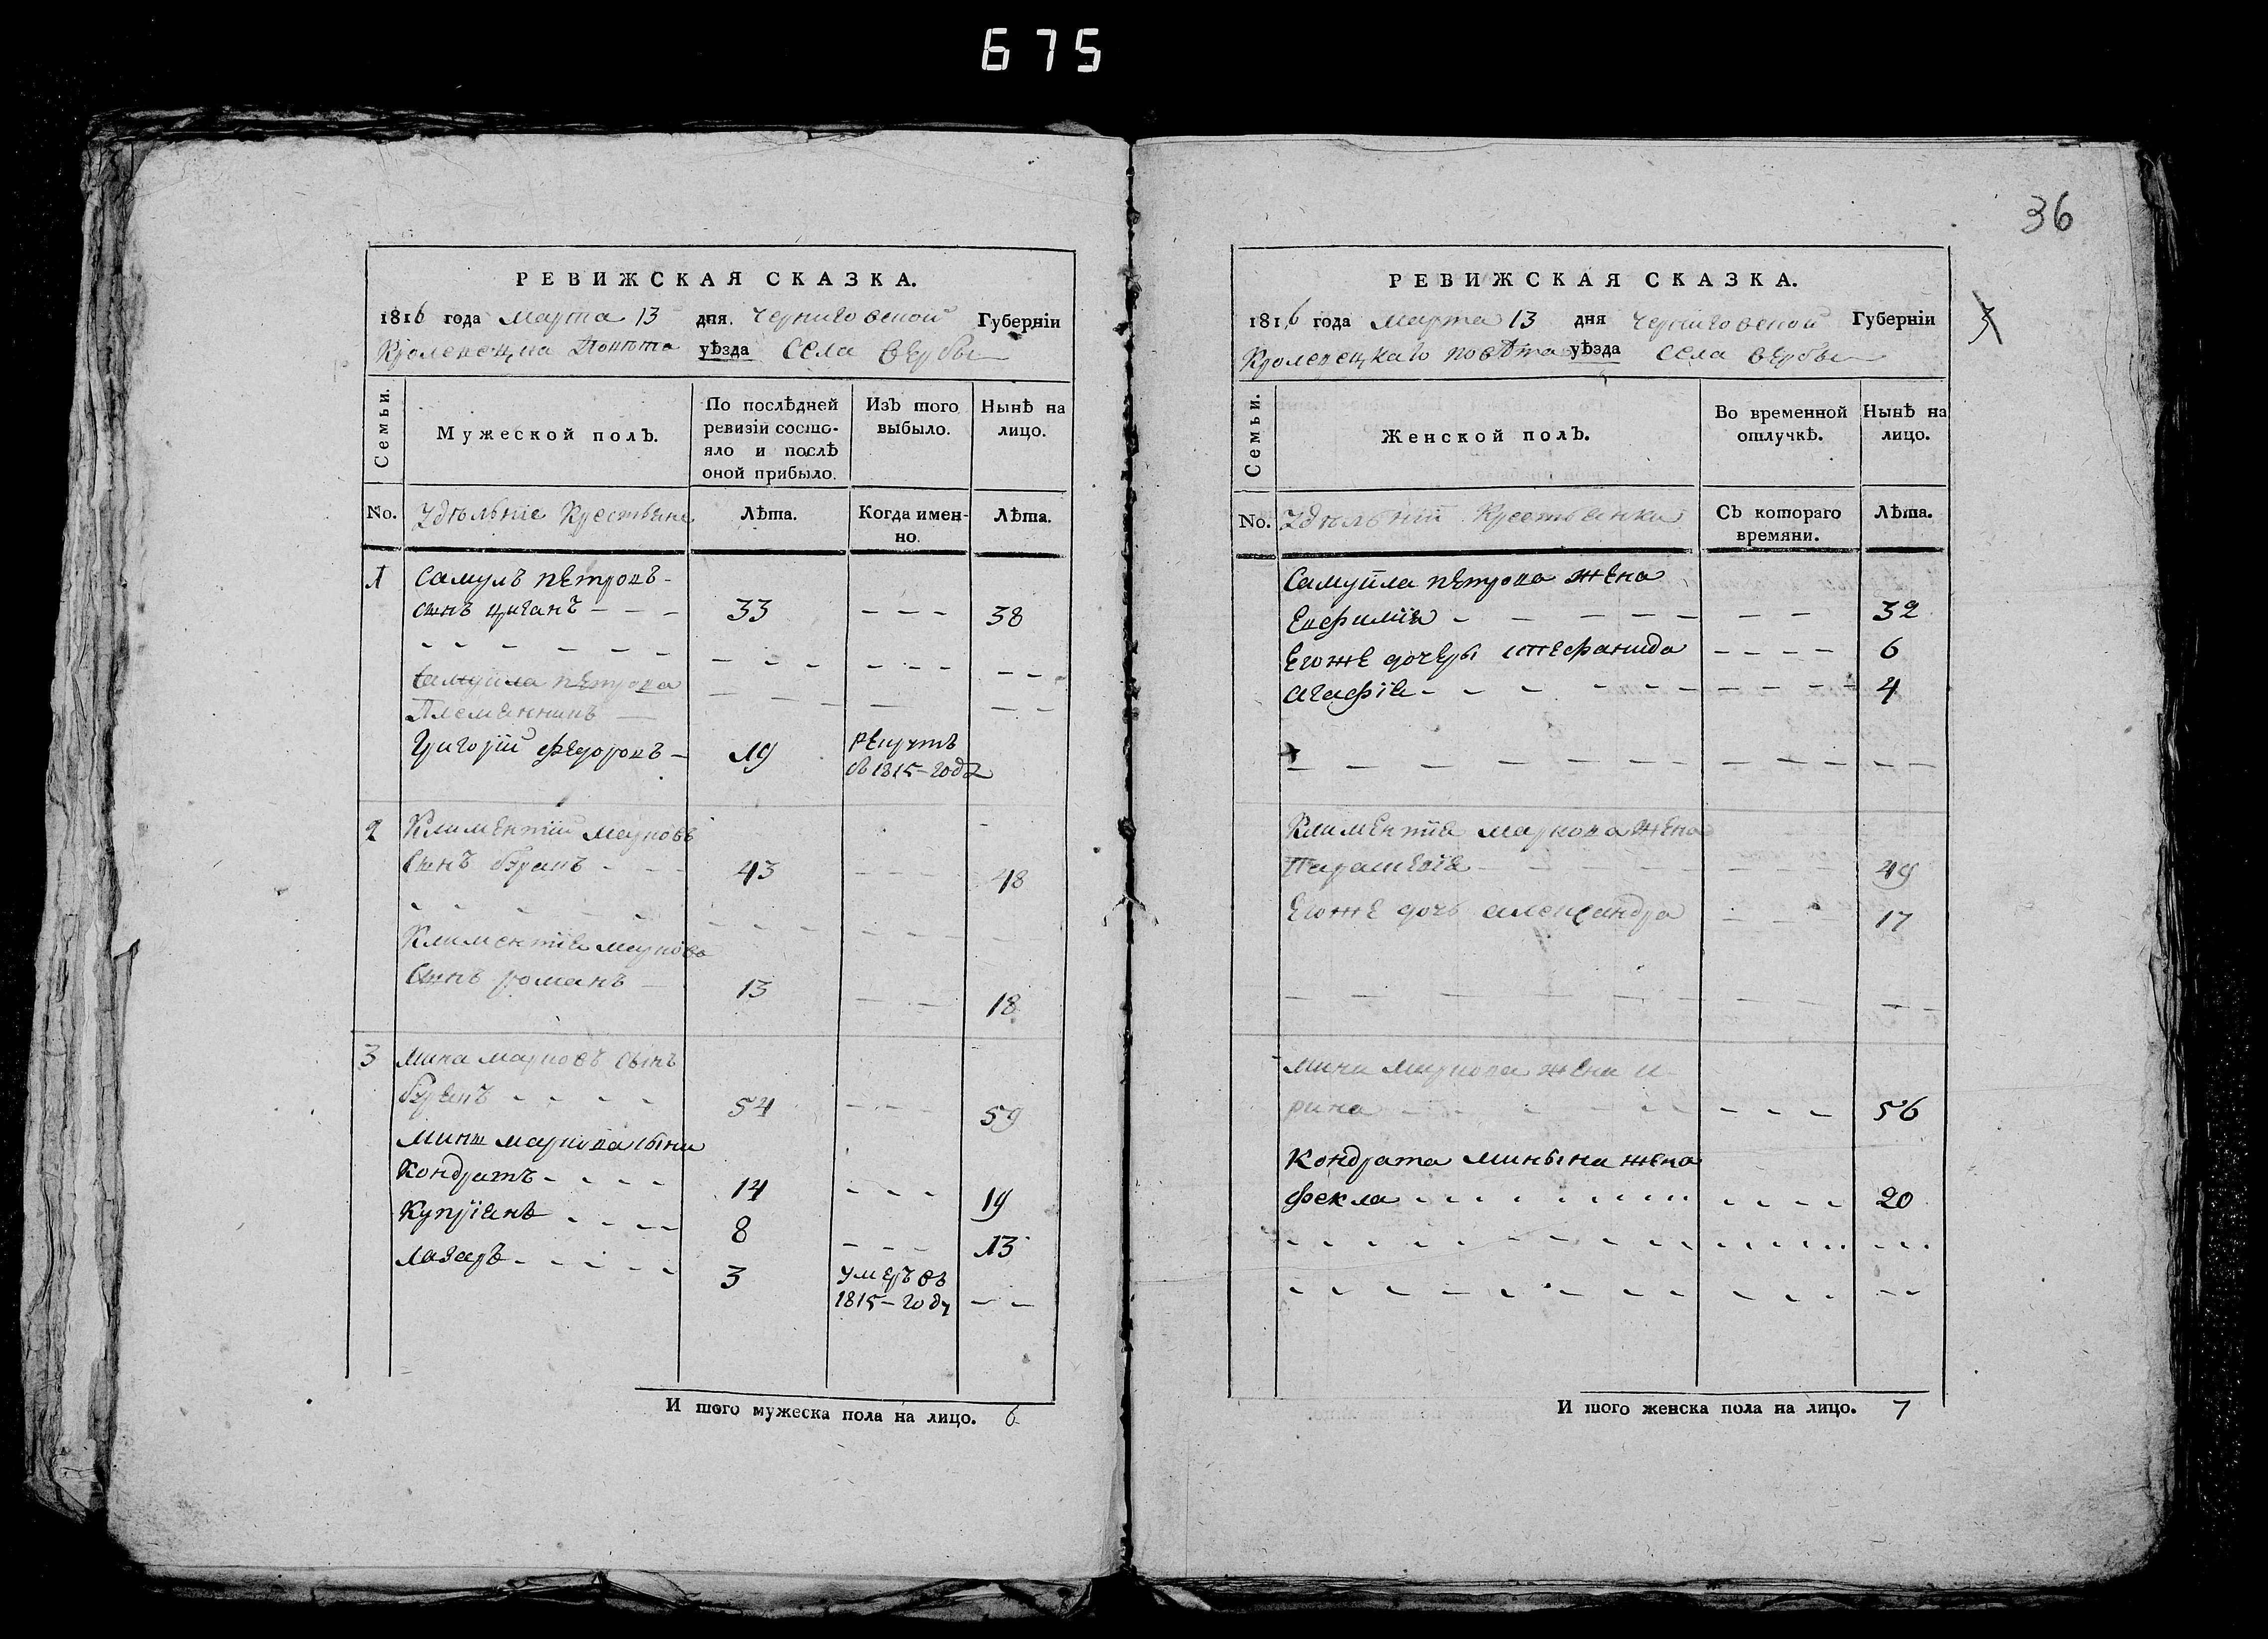 675
РЕВИЖСКАЯ СКАЗКА.
1816 года марта 13 дня Черниговской Губерніи
Повѣта уѣзда Села вербы
Семьи.
Мужеской полъ.
По послѣдней ревизіи состо-
яло и послѣ
оной прибыло.
Изъ того
выбыло.
Нынѣ на
лицо.
No. Удѣльніе Крестьяне Лѣта. Когда имен-
но. Лѣта.
1 Самулъ петровъ
синъ циганъ - - - 33 - - - 38
Самуила петрова
Племянникъ
Григорій федоровъ - 19 рекрутъ
въ 1815 - года
2 Климентій марковъ
Синъ 43 - - - 48
Климентія маркова
Синъ романъ - 13 - - - 18
3 мина марковъ сынъ
54 - - - 59
мини маркова сыни
Кондратъ - - - - 14 - - - 19
Купріянъ - - - - 8 - - - 13
лазаръ - - - - - 3 умеръ въ
1815 - году - -
И того мужеска пола на лицо. 6
36
РЕВИЖСКАЯ СКАЗКА.
1816 года марта 13 дня Черниговской Губерніи
Кролевецкаго повѣта уѣзда села вербы
Семьи.
Женской полъ.
Во временной
отлучкѣ.
Нынѣ на
лицо.
No. Удѣльніи Крестьянки Съ котораго
времяни. Лѣта.
Самуила петрова жена
Евфимія - - - - - - - 32
Егоже дочеры стефанида - - - - 6
агафія - - - - - - - 4
Климентія маркова жена
Параскевія - - - - - - - 49
Егоже дочь александра - - - 17
мини маркова жена и-
рина - - - - - - - - 56
Кондрата минына жена
фекла - - - - - - - - 20
И того женска пола на лицо. 7